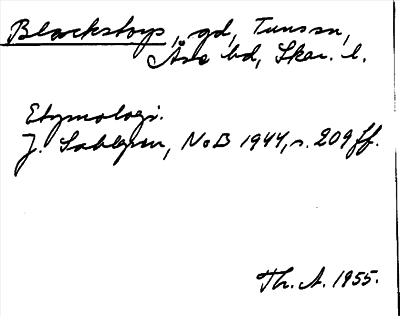 Blackstorp, gd, Tun ssn,
Åse hd, Skar. l.
Etymologi.
J. Sahlgren, NoB 1944, s. 209 ff.
Th. A. 1955.